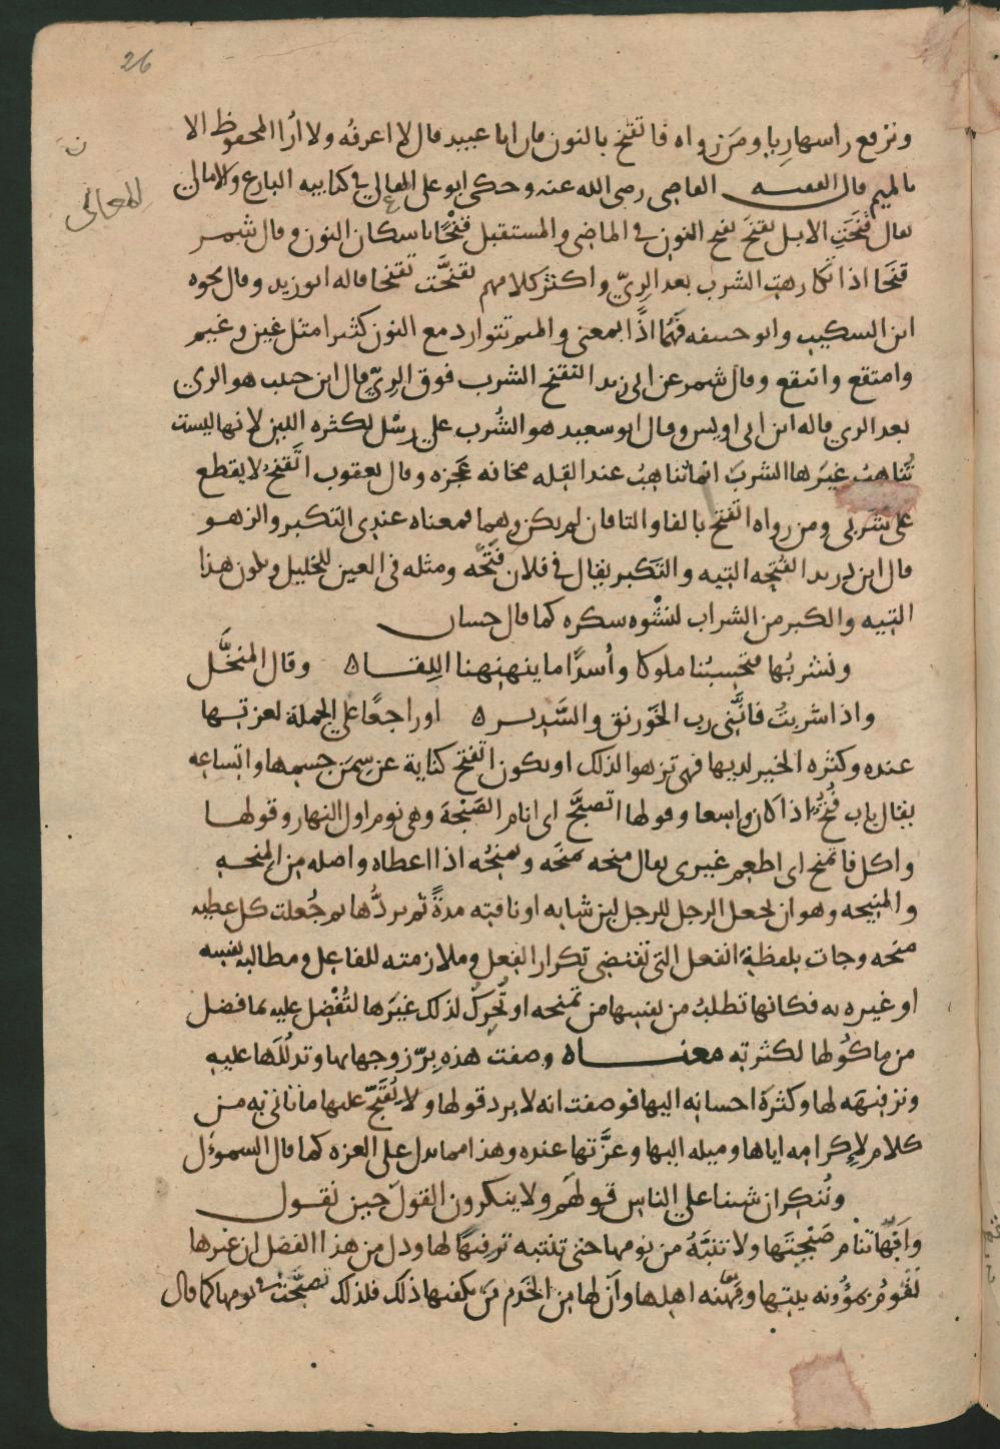 26
وترفع راسها ريا ومن رواه فاتقنح بالنون فان ابا عبيد قال لا اعرفه ولا أرا المحفوظ الا
بالميم قال الفقيه القاضي رضي الله عنه وحكى ابو علي القالي في كتابيه البارع والامالي
المعالي
يقال قنحت الابل تقنح بفتح النون في الماضي والمستقبل قنْحًا باسكان النون وقال شمر
قنحا اذا تكارهت الشرب بعد الريّ واكثر كلامهم تقنّحت تقنحا قاله ابو زيد وقال نحوه
ابن السكيت وابو حنيفه فهما اذًا بمعنى والميم تتوارد مع النون كثيرا مثل غين وغيم
وامتقع وانتقع وقال شمر عن ابي زيد التقنح الشرب فوق الريّ قال ابن حبيب هو الري
بعد الري قاله ابن ابي اويس وقال ابو سعيد هو الشُرب على رسْل لكثره اللبن لانها ليست
تُناهب غيرها الشرب انما تناهب عند القله مخافه عجزه وقال يعقوب اتقنح لا يقطع
على شربي ومن رواه اتفتح بالفا والتا فان لم يكن وهما فمعناه عندي التكبر والزهو
قال ابن دريد الفَتحه التيه والتكبر يقال في فلان فَتْحه ومثله في العين للخليل ويكون هذا
التيه والكبر من الشراب لنشوه سكره كما قال حسان
ونشربُها فتحسبُنا ملوكا وأُسدًا ما ينهنهنا اللِقاه وقال المنخَّل
واذا شربتُ فانّني رب الخَورنق والسَّدير ه او راجعًا على الجملة لعزتها
عنده وكثره الخير لديها فهي تزهوا لذلك او يكون اتفتح كناية عن سِمَن جسمها واتساعه
يقال باب فُتُحٌ اذا كان واسعا وقولها اتصبَّح اي انام الصَبْحة وهي نوم اول النهار وقولها
واكل فاتمنح اي اطعم غيري يقال منحه يمنَحه ويمنِحُه اذا اعطاه واصله من المنحه
والمنيحه وهو ان يجعل الرجل للرجل لبن شاته او ناقته مدةً ثم يردُّها ثم جُعلت كل عطيه
منحه وجات بلفظة اتفعل التي تقتضي تكرار الفعل وملازمته للفاعل ومطالبه نفسه
او غيره به فكانها تطلبُ من نفسها من تمنحه او تُحرِك لذلك غيَرها لتُفْضل عليه بما فضل
من ماكُولها لكثرته معناه وصفت هذه برّ زوجها بها وتدلُلَها عليه
وترفيهَه لها وكثرَة احسانه اليها فوصفت انه لا يرد قولها ولا يُقبّح عليها ما تاتي به من
كلام لإكرامه اياها وميله اليها وعزَّتها عنده وهذا مما يدل على العزه كما قال السموؤل
ونُنكر ان شئنا على الناس قولهَم ولا ينكرون القولَ حين نقول
وانّها تنام صَبْحتَها ولا تنبَّهُ من نومها حتى تنتبه ترفيهًا لها ودل من هذا الفصل ان غيرها
تقوم بمؤونه بيتها ومهنه اهلها وأن لها من الخدم من يكفيها ذلك فلذلك تصبَّحت في نومها كما قال